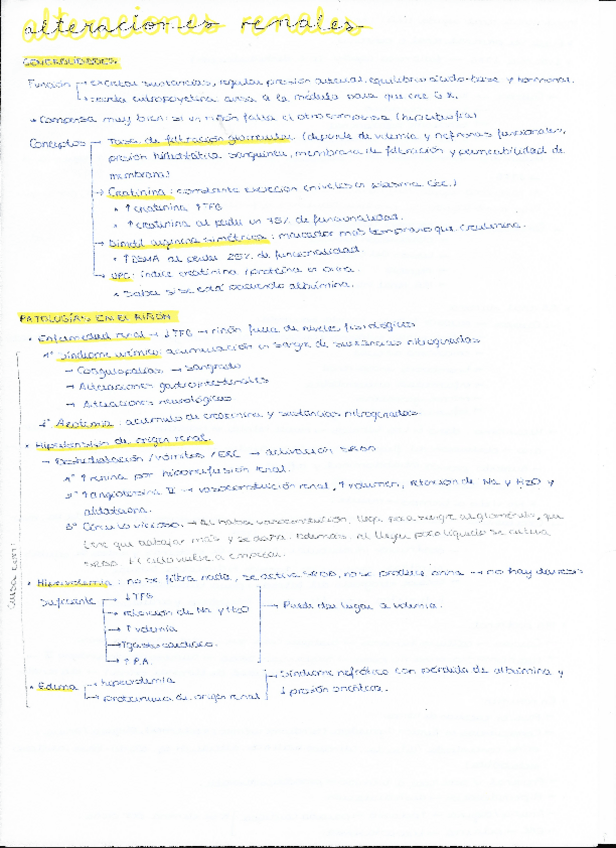 alteraciones renales
GENERALIDADES
Función → excretar sustancias, regular presión arterial, equilibrio ácido-base y hormonal.
→ eritropoyetina a la médula para que cree
* Compensa muy bien: si un riñón falla el otro compensa (hipertrofia)
Conceptos → Tasa de filtración glomerular (depende de volemia y nefronas funcionales,
presión hidrostática sanguínea, membrana de filtración y permeabilidad de
membrana)
→ Creatinina: constante excreción (niveles en plasma)
* ↑ creatinina ↓TFG
* ↑ creatinina al perder un 75% de funcionalidad.
→ Dimetil arginina simétrica: marcador más temprano que creatinina.
* ↑ SDMA al perder 25% de funcionalidad.
→ UPC: índice creatinina/proteína en orina.
* Saber si se está perdiendo albúmina.
PATOLOGÍAS EN EL RIÑÓN
• Enfermedad renal → ↓TFG → riñón fuera de niveles fisiológicos
Síndrome urémico: acumulación en sangre de sustancias nitrogenadas
→ Coagulopatías → sangrado
→ Alteraciones gastrointestinales
→ Alteraciones neurológicas
Azotemia: acúmulo de creatinina y sustancias nitrogenadas.
• Hipertensión de origen renal.
→ Deshidratación/vómitos/ERC → activación SRAA
1º ↑ renina por hipoperfusión renal.
2º ↑ angiotensina II → vasoconstricción renal, ↑ volumen, retención de Na y H2O y
aldosterona.
3º Círculo vicioso → Al haber vasoconstricción, llega poca sangre al glomérulo, que
tiene que trabajar más y se daña. Además, al llegar poco líquido se activa
SRAA. El ciclo vuelve a empezar.
• Hipervolemia: no se filtra nada, se activa SRAA, no se produce orina → no hay diuresis
→ ↓TFG
→ retención de Na y H2O → Puede dar lugar a edema.
→ ↑ volemia
→ ↑ gasto cardíaco.
→ ↑ P.A.
• Edema → hipervolemia → Síndrome nefrótico con pérdida de albúmina y
→ proteinuria de origen renal ↓ presión oncótica.